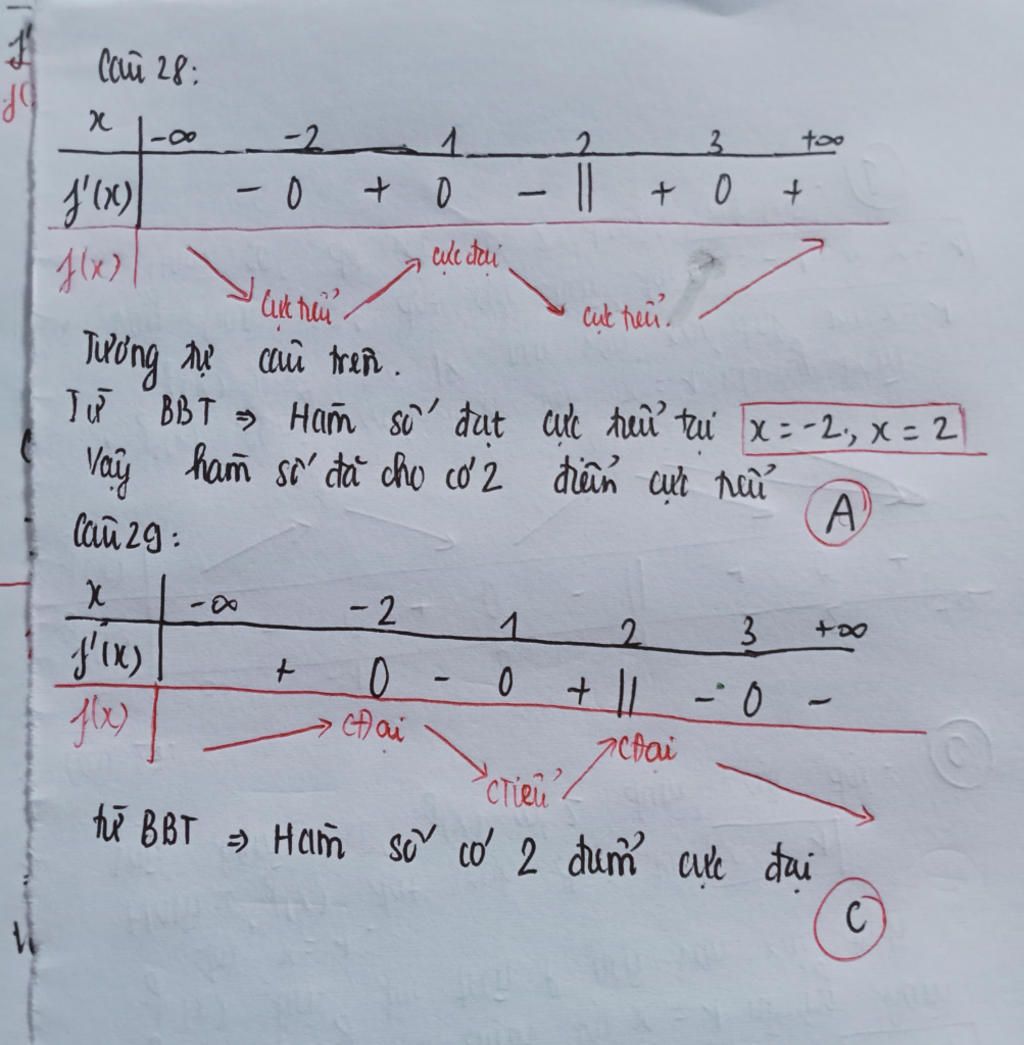 Câu 28:
x -∞ -2 1 2 3 +∞
f'(x) - 0 + 0 - || + 0 +
f(x) cực tiểu cực đại cực tiểu
Tương tự câu trên.
Từ BBT ⇒ Hàm số đạt cực tiểu tại x = -2, x = 2
Vậy hàm số đã cho có 2 điểm cực tiểu
A
Câu 29:
x -∞ -2 1 2 3 +∞
f'(x) + 0 - 0 + || - 0 -
f(x) CĐại CTiểu CĐại
từ BBT ⇒ Hàm số có 2 điểm cực đại
C